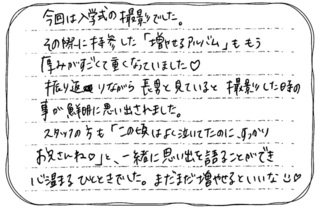 今回は入学式の撮影でした。
その際に持参した「増やせるアルバム」ももう
厚みがすごくて重くなっていました♡
振り返りながら長男と見ていると撮影した日時の
事が鮮明に思い出されました。
スタッフの方も「この頃はよく泣いてたのに、すっかり
お兄さんね♡」と、一緒に思い出を語ることができ
心温まるひとときでした。まだまだ増やせるといいな☺♡